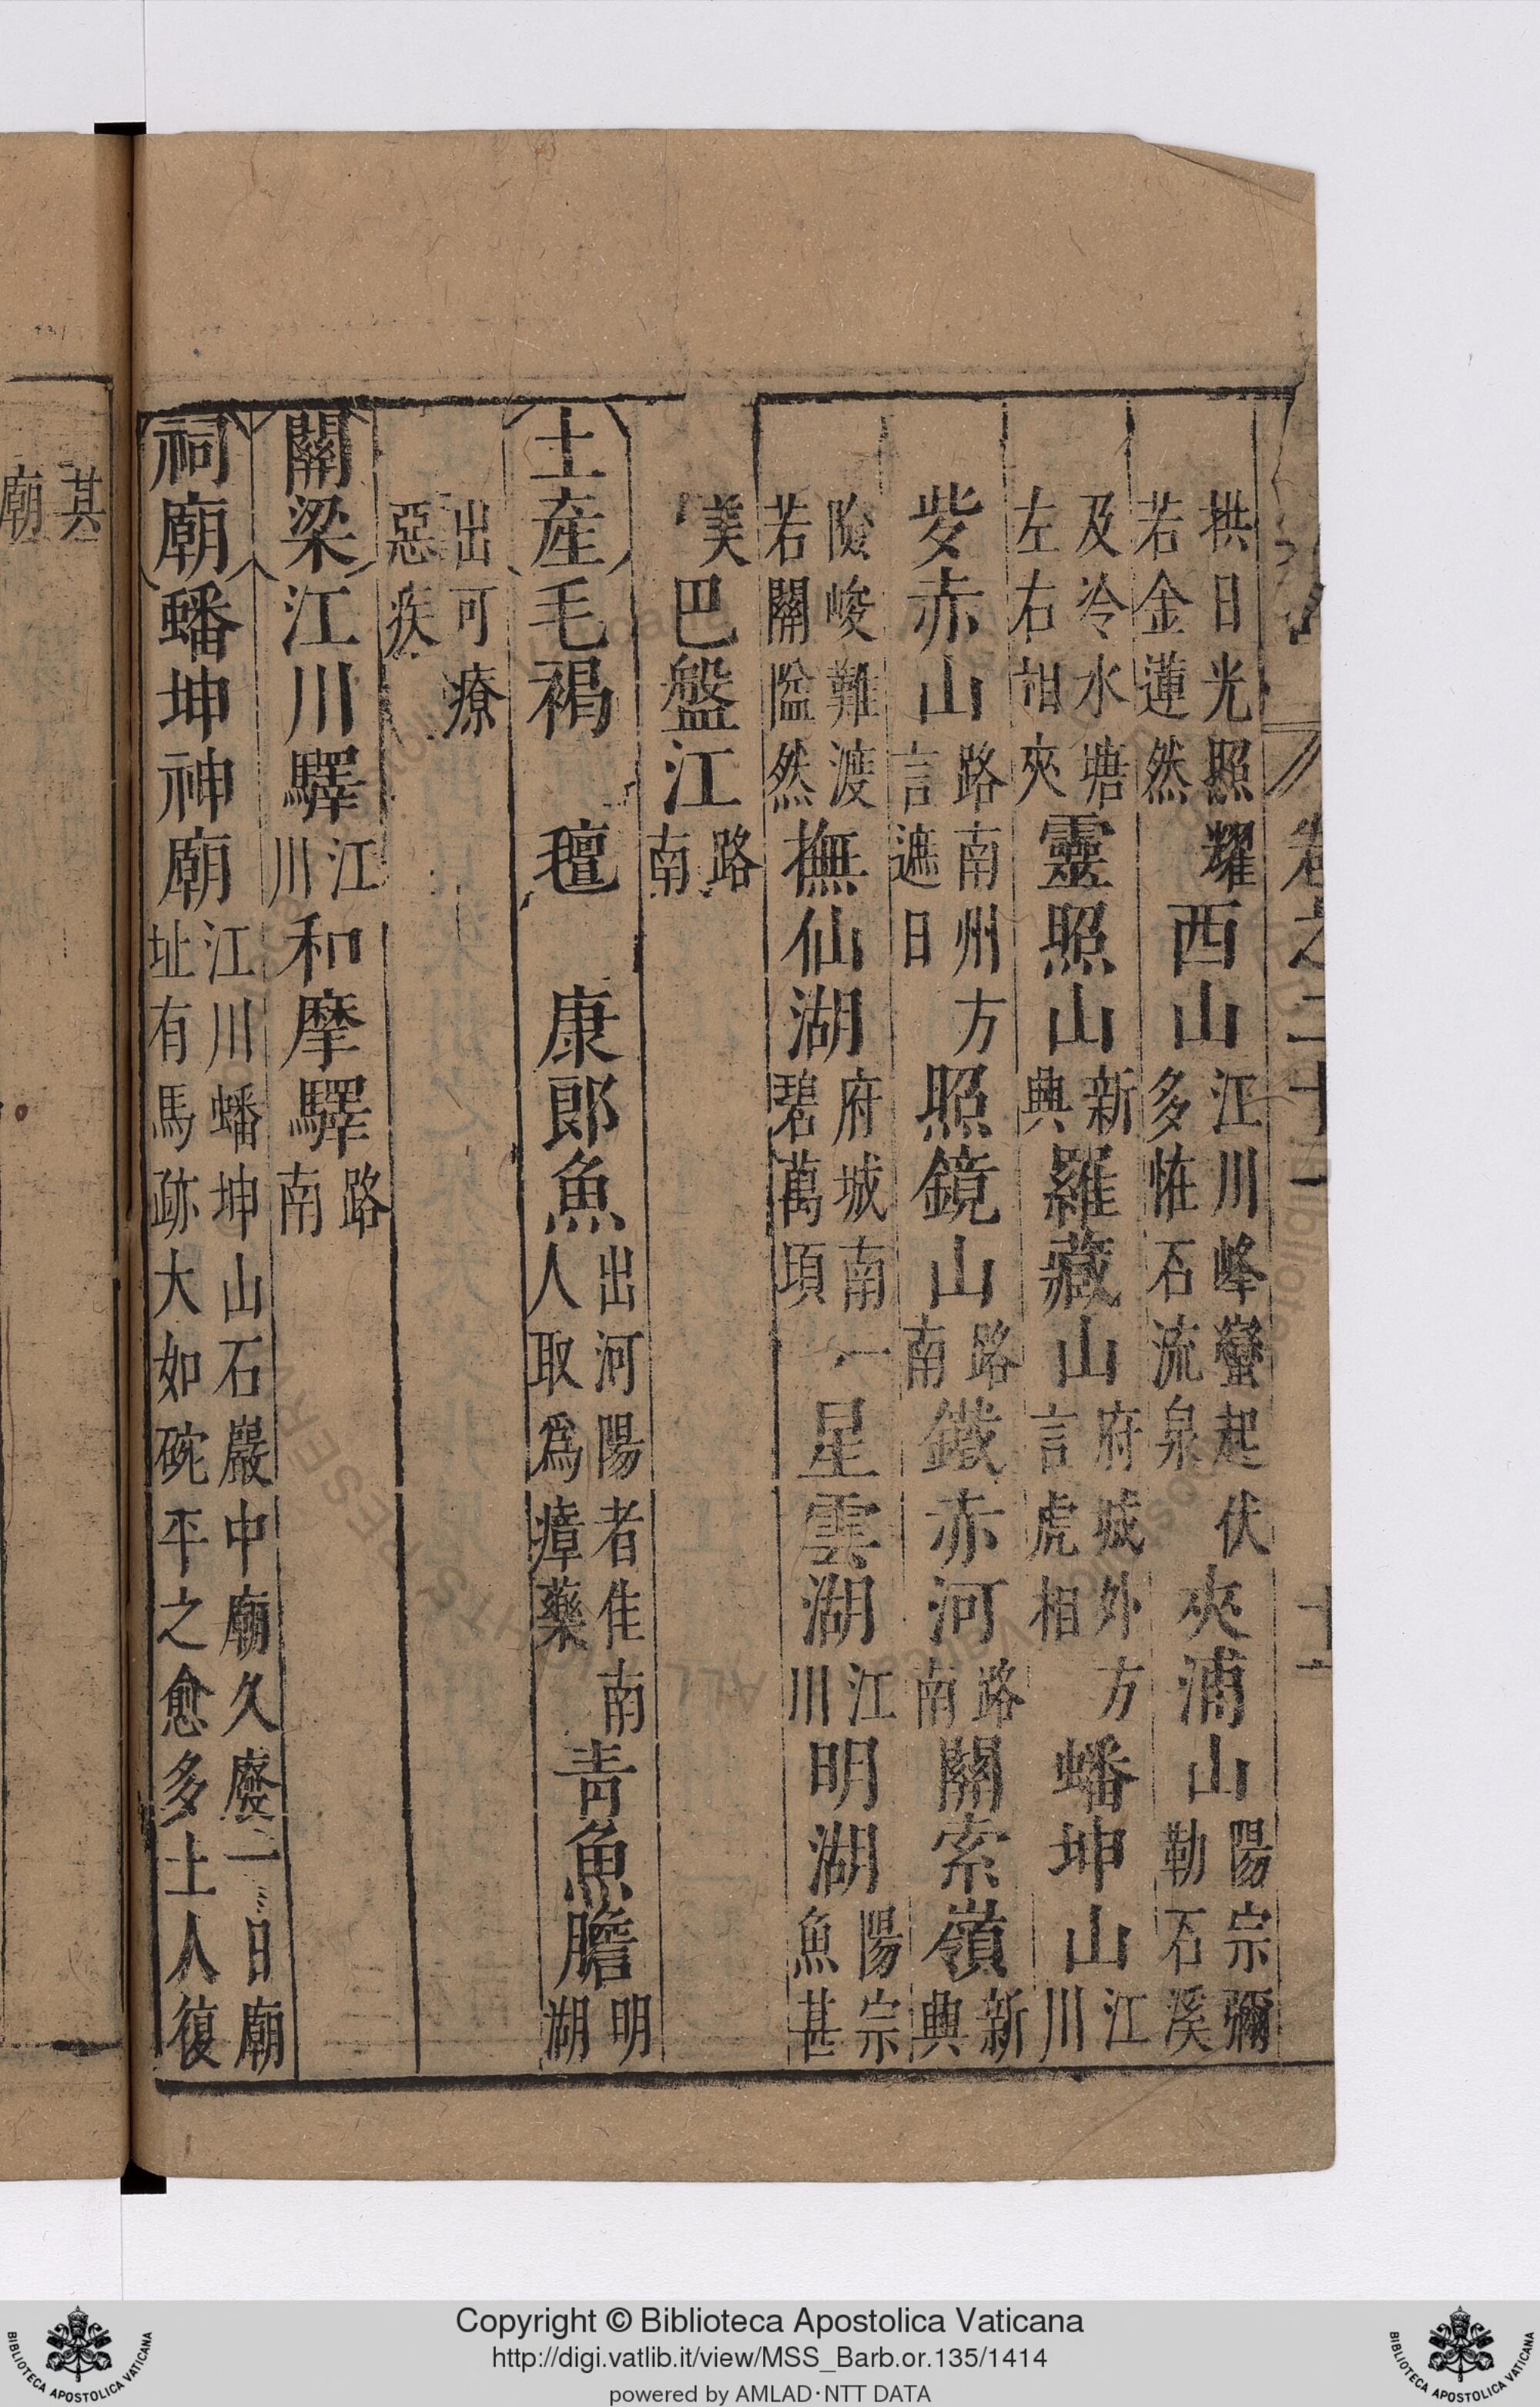 卷之二十一 十一
拱日光照耀若金蓮然西山江川峰巒起伏多恠石流泉夾浦山陽宗彌勒石溪
及冷水塘左右相夾靈照山新典羅藏山府城外方言虎相蟠坤山江川
赤山路南州方言遮日照鏡山路南鐵赤河路南關索嶺新典
險峻難渡若關隘然撫仙湖府城南一碧萬頃星雲湖江川明湖陽宗魚甚
美巴盤江路南
土産毛褐 氊 康郎魚出河陽者佳南人取爲瘴藥青魚膽明湖
出可療惡疾
關梁江川驛江川和摩驛路南
祠廟蟠坤神廟江川蟠坤山石巖中廟久廢一日廟址有馬跡大如碗平之愈多土人復
其
廟
Copyright © Biblioteca Apostolica Vaticana
http://digi.vatlib.it/view/MSS_Barb.or.135/1414
powered by AMLAD·NTT DATA
BIBLIOTECA APOSTOLICA VATICANA
BIBLIOTECA APOSTOLICA VATICANA